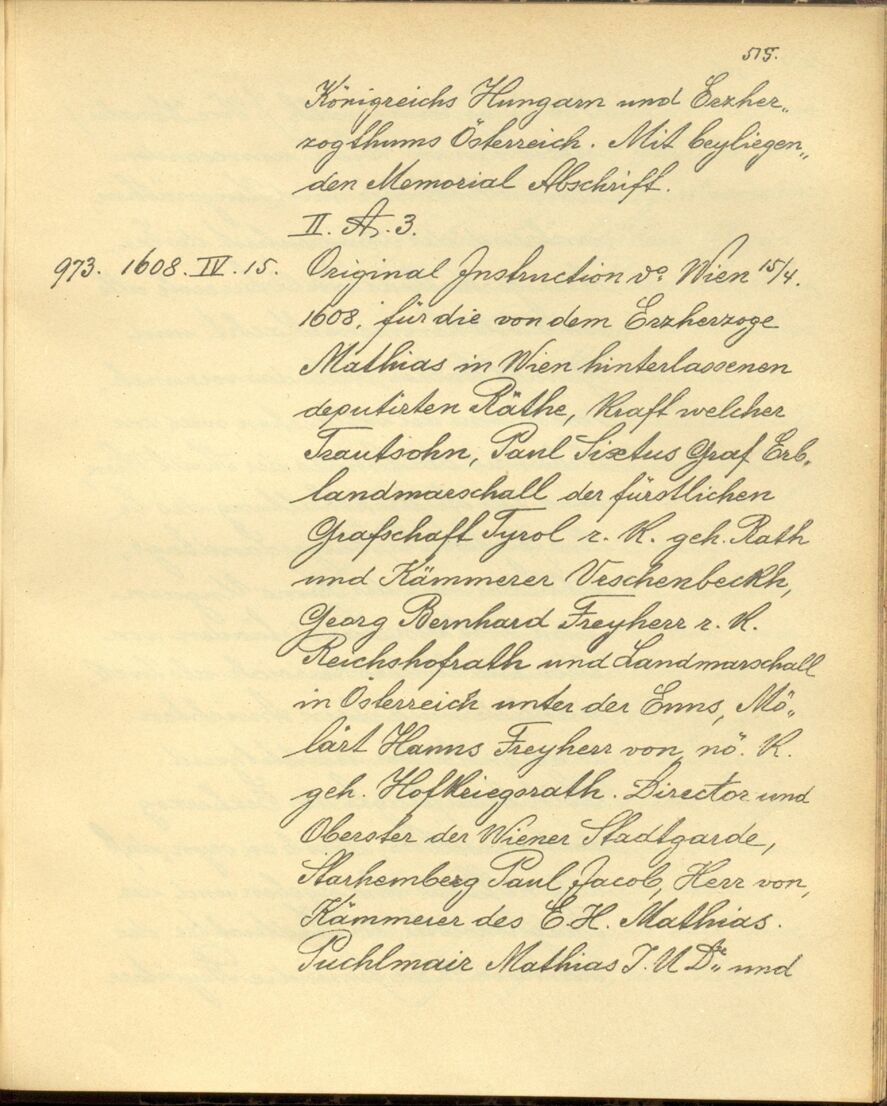 515.
Königreichs Hungarn und Erzher„
zogthums Österreich. Mit beyliegen„
den Memorial Abschrift.
II. A. 3.
973. 1608. IV. 15. Original Instruction vº Wien 15/4.
1608, für die von dem Erzherzoge
Mathias in Wien hinterlassenen
deputirten Räthe, Kraft welcher
Trautsohn, Paul Sixtus Graf Erb„
landmarschall der fürstlichen
Grafschaft Tyrol r. K. geh. Rath
und Kämmerer Vrschenbeckh,
Georg Bernhard Freyherr r. K.
Reichshofrath und Landmarschall
in Österreich unter der Enns, Mö„
lärt Hanns Freyherr von, nö. K.
geh. Hofkriegsrath. Director und
Oberster der Wiener Stadtgarde,
Starhemberg Paul Jacob, Herr von,
Kämmerer des E.H. Mathias.
Puchlmair Mathias J. U Dr. und